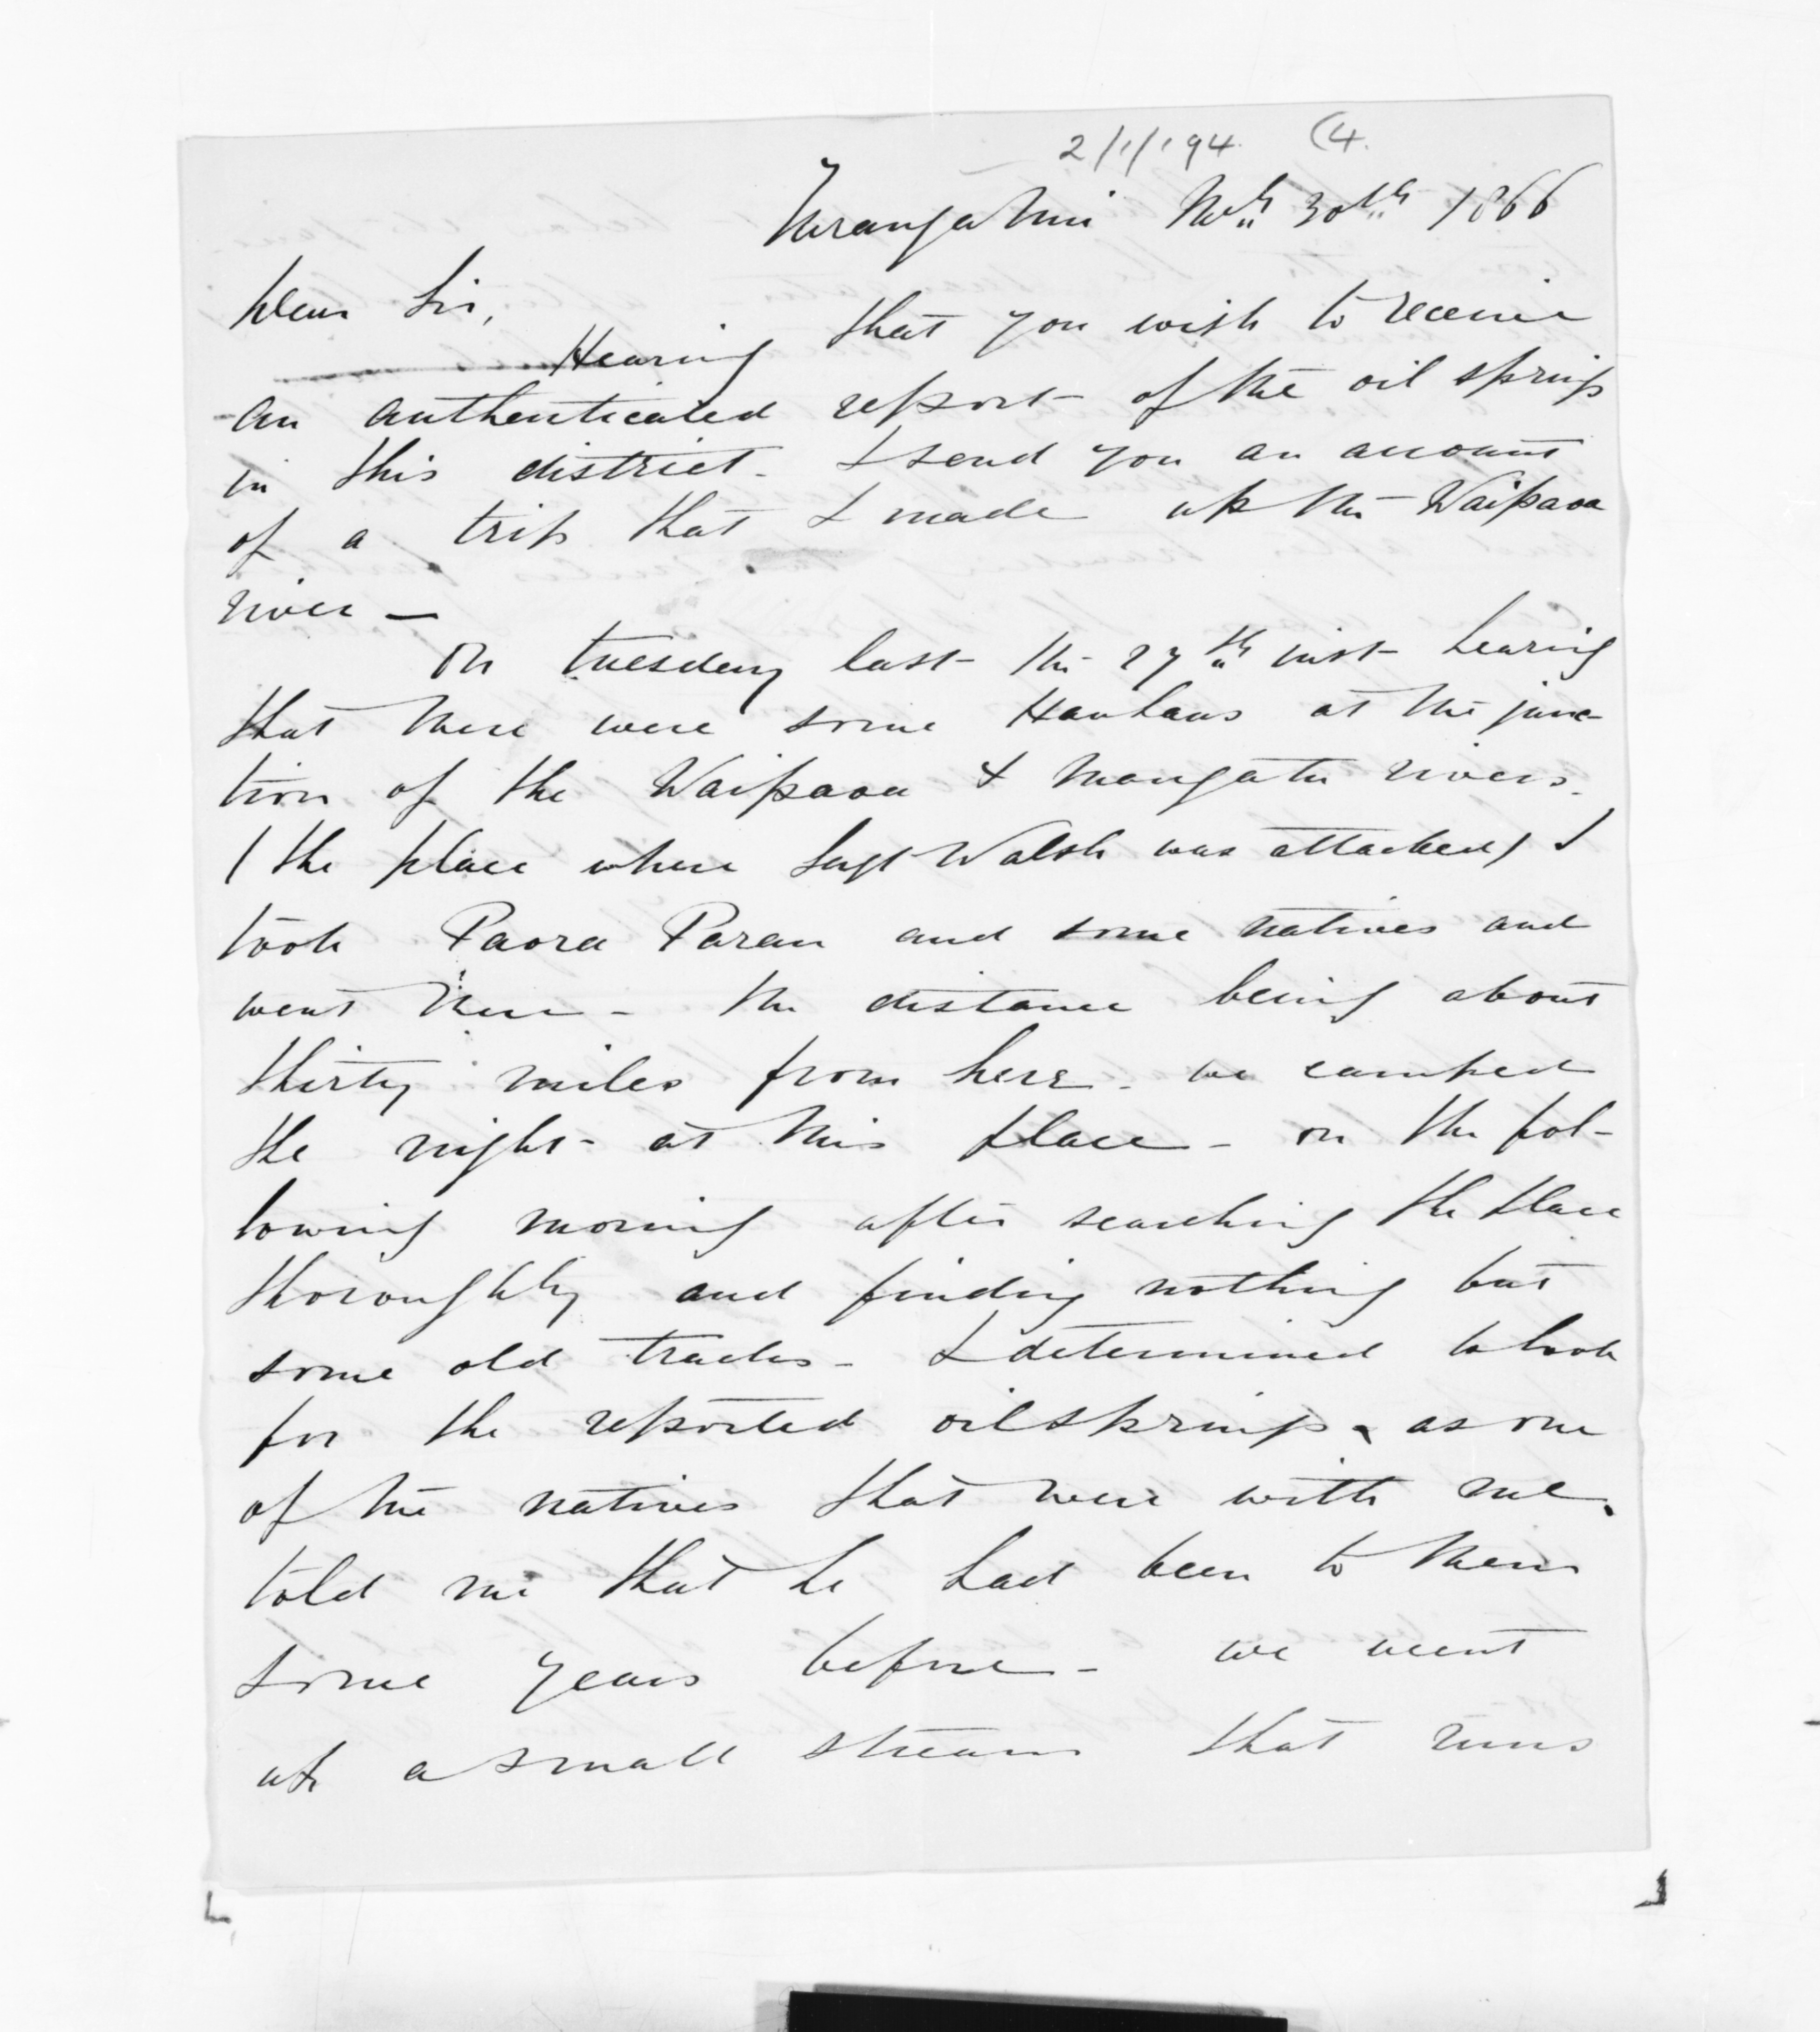 2/1/194. (4.
Turanga Nui Mch 30th 1866
Dear Sir,
Hearing that you wish to receive
an authenticated report of the oil springs
in this district. I send you an account
of a trip that I made up the Waipaoa
river —
On tuesday last the 27th inst hearing
that there were some Hauhaus at the junc-
tion of the Waipaoa & Mangatu rivers.
(the place where Sergt Walsh was attacked) I
took Paora Parau and some natives and
went there - the distance being about
thirty miles from here. we camped
the night at this place - on the fol-
lowing morning after searching the place
thoroughly and finding nothing but
some old tracks - I determined to look
for the reported oil springs, as one
of the natives that were with me,
told me that he had been to them
some years before - we went
up a small stream that runs